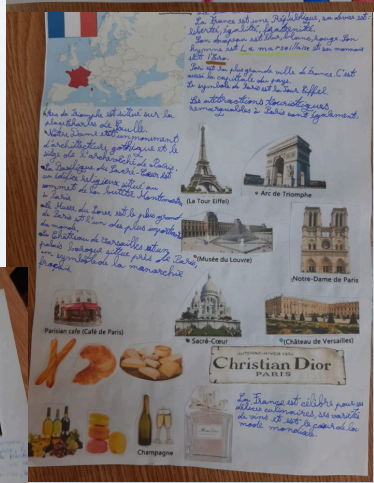 La France est une République, sa devise est:
liberté, égalité, fraternité.
Son drapeau est bleu, blanc, rouge. Son
hymne est La marseillaise et sa monnaie
est l'Euro.
Paris est la plus grande ville de France. C'est
aussi la capitale du pays.
Le symbole de Paris est la Tour Eiffel.
Les attractions touristiques
remarquables à Paris sont également:
Arc de Triomphe est situé sur la
place Charles de Gaulle.
Notre Dame est un monument
d'architecture gothique et le
siège de l'archevêché de Paris.
La Basilique du Sacré-Cœur est
un édifice religieux situé au
sommet de la butte Montmartre,
à Paris
Le Musée du Louvre est le plus grand
de Paris et l'un des plus importants
du monde.
Le Château de Versailles est un
palais baroque situé près de Paris,
un symbole de la monarchie
(La Tour Eiffel)
Arc de Triomphe
(Musée du Louvre)
Notre-Dame de Paris
Parisian cafe (Café de Paris)
Sacré-Cœur
(Château de Versailles)
Christian Dior
PARIS
Champagne
La France est célèbre pour ses
délices culinaires, ses variétés
de vins et est le cœur de la
mode mondiale.